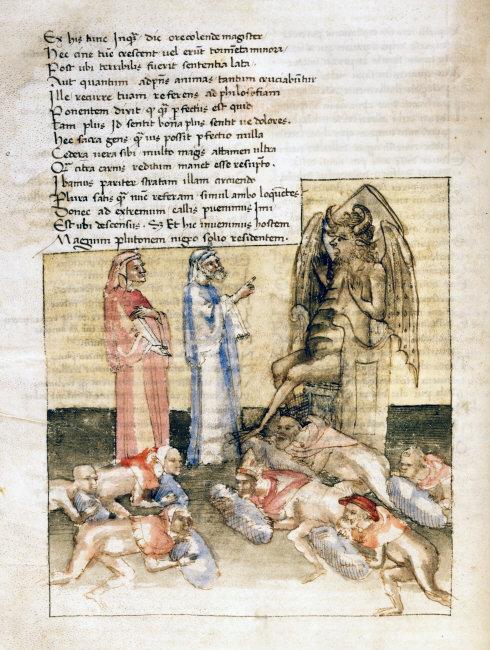 Ex his tunc Inqᷓ dic o recolende magister
Hec cine tūc crescent vel erūt tormēta minora
Post ubi terribilis fuerit sententia lata
Aut quantum adpñs animas tantum cruciabūtur
Ille recurre tuam referens ad philosofiam
Ponentem dixit qᷓ qᷓ pfectius est quid
Tam plus Id sentit bona plus sentit ve dolores.
Hec sacra gens qᷓuis possit pfectio nulla
Cedera vera sibi multo magis attamen ultra
Qᷓ citra carnis reditum manet esse resūpto.
Ibamus pariter stratam illam circuendo
Plura satis qᷓ nūc referam simul ambo loquētes
Donec ad extremum callis puenimus Imi
Est ubi descensus. Et hic invenimus hostem
Magnum plutonem nigro solio residentem.